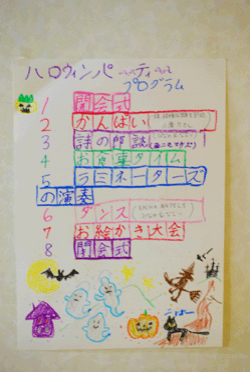 ハロウィンパーティー
プログラム
1 開会式
2 かんぱい
3 詩の朗読
4 お食事タイム
5 ラミネーターズ
の演奏
6 ダンス
7 お絵かき大会
8 閉会式